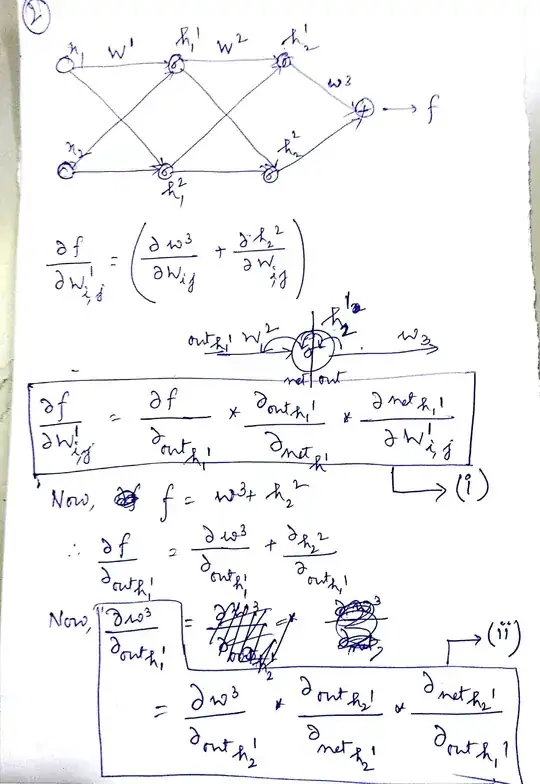 2
x₁ W¹ h₁¹ W² h₂¹
w3
+ → f
x₂ h₁² h₂²
∂f/∂W¹i,j = (∂w³/∂Wi,j + ∂h₂²/∂Wi,j)
out h₁¹ W² h₂¹ w3
net out
∂f/∂W¹i,j = ∂f/∂out h₁¹ * ∂out h₁¹/∂net h¹ * ∂net h₁¹/∂W¹i,j
→ (i)
Now, f = w³ + h₂²
∴ ∂f/∂out h₁¹ = ∂w³/∂out h₁¹ + ∂h₂²/∂out h₁¹
Now, ∂w³/∂out h₁¹ =
→ (ii)
= ∂w³/∂out h₂¹ * ∂out h₂¹/∂net h₂¹ * ∂net h₂¹/∂out h₁¹